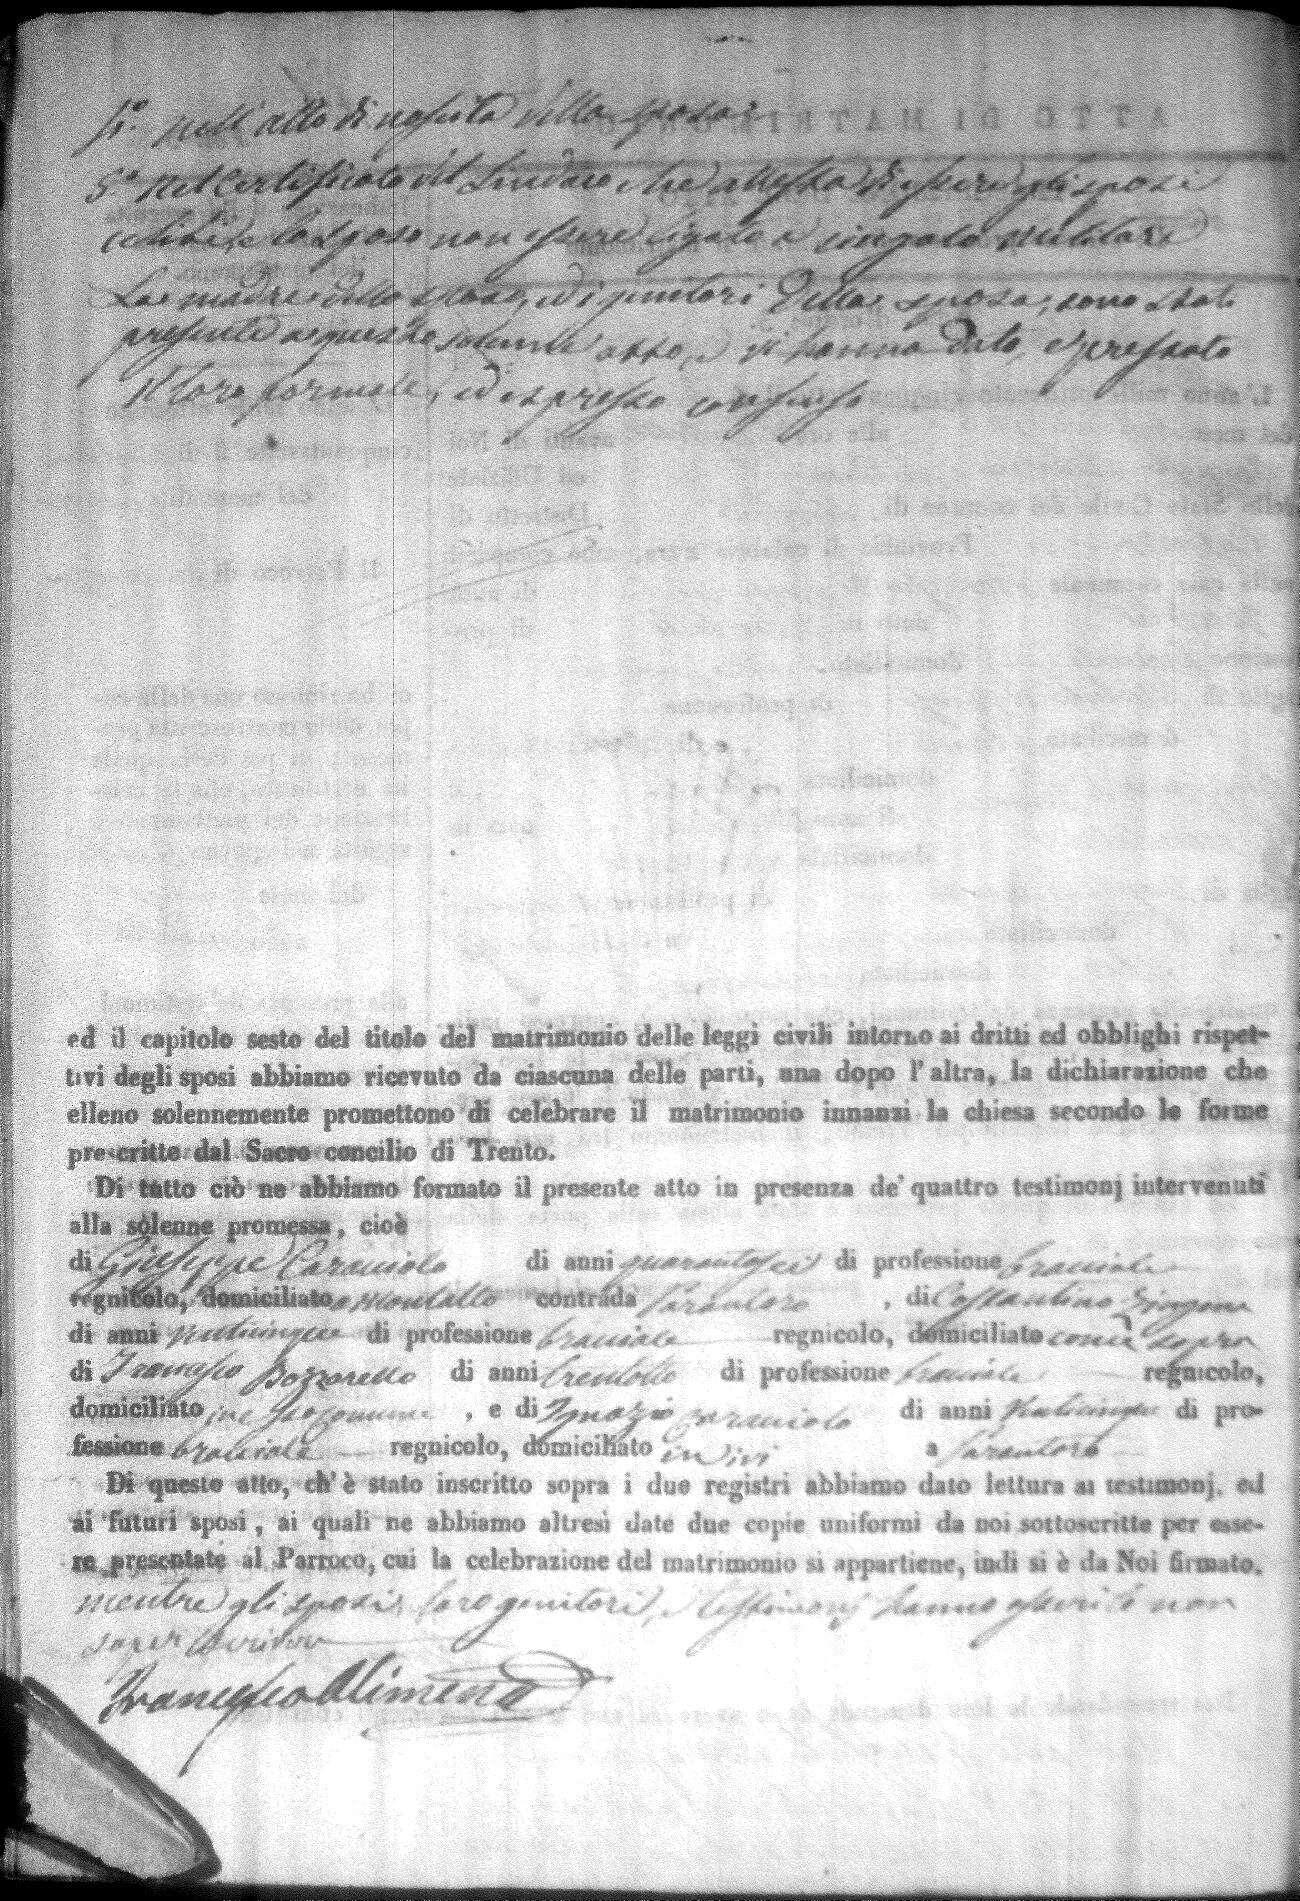 4°. nell'atto di nascita della sposa
5° nel Certificato del Sindaco che attesta di essere gli sposi
celibi, e lo sposo non essere ligato a cingolo militare
La madre dello sposo, ed i genitori della sposa, sono stati
presenti a questo solenne atto, e vi hanno dato, e prestato
il loro formale, ed espresso consenso
ed il capitolo sesto del titolo del matrimonio delle leggi civili intorno ai dritti ed obblighi rispet-
tivi degli sposi abbiamo ricevuto da ciascuna delle parti, una dopo l'altra, la dichiarazione che
elleno solennemente promettono di celebrare il matrimonio innanzi la chiesa secondo le forme
prescritte dal Sacro concilio di Trento.
Di tutto ciò ne abbiamo formato il presente atto in presenza de' quattro testimonj intervenuti
alla solenne promessa, cioè
di Giuseppe Caraciolo di anni quarantasei di professione bracciale
regnicolo, domiciliato a Montalto contrada Parantoro , di Costantino
di anni venticinque di professione bracciale regnicolo, domiciliato come sopra
di Francesco Pozzarello di anni trentotto di professione bracciale regnicolo,
domiciliato in esso comune , e di Ignazio Caraciolo di anni venticinque di pro-
fessione bracciale regnicolo, domiciliato in ivi a Parantoro
Di questo atto, ch'è stato inscritto sopra i due registri abbiamo dato lettura ai testimonj, ed
ai futuri sposi, ai quali ne abbiamo altresì date due copie uniformi da noi sottoscritte per esse-
re presentate al Parroco, cui la celebrazione del matrimonio si appartiene, indi si è da Noi firmato.
mentre gli sposi, loro genitori, e testimonj hanno asserito non
saper scrivere
Francesco Alimena